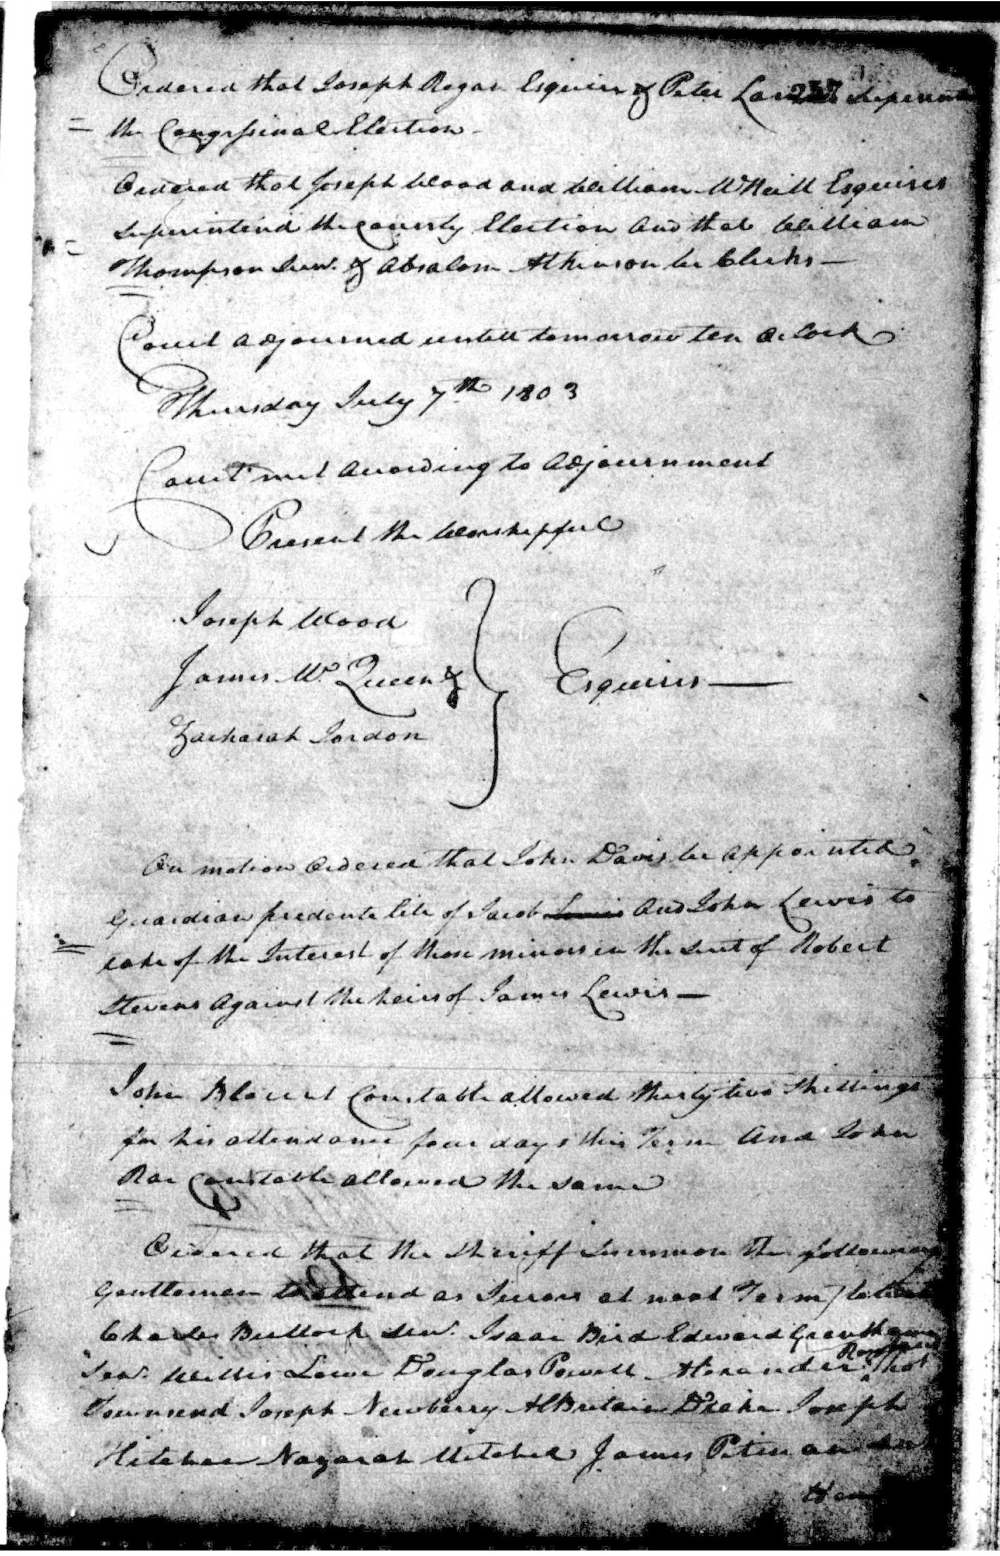 Ordered that Joseph Regan Esquire & Peter 237
the Congressinal Election
Ordered that Joseph Wood and William McNeill Esquires
Superintend the County Election And that William
Thompson Senr. & Absalom Atkinson be Clerks —
Court adjourned untill tomorrow ten oClock
Thursday July 7th 1803
Court met According to Adjournment
Present the Worshipful
Joseph Wood
James Mc Queen &
Zachariah Jordon
Esquires —
On motion Ordered that John Davis be appointed
Guardian predente lite of Jacob Lewis And John Lewis to
take of the Interest of those minors in the Suit of Robert
Stevens Against the heirs of James Lewis —
John Blount Constable allowed thirty two Shillings
for his attendance four days this Term And John
Rae Constable allowed the same
Ordered that the Sheriff Summon the following
Gentlemen to attend as Jurors at next Term
Charles Bullock Senr. Isaac Bird Edward Grantham
Senr. Willis Lowe Douglas Powell Alexander
Townsend Joseph Newberry AlBritain Drake Joseph
Hitchee Nazarah Mitchel James Pitman